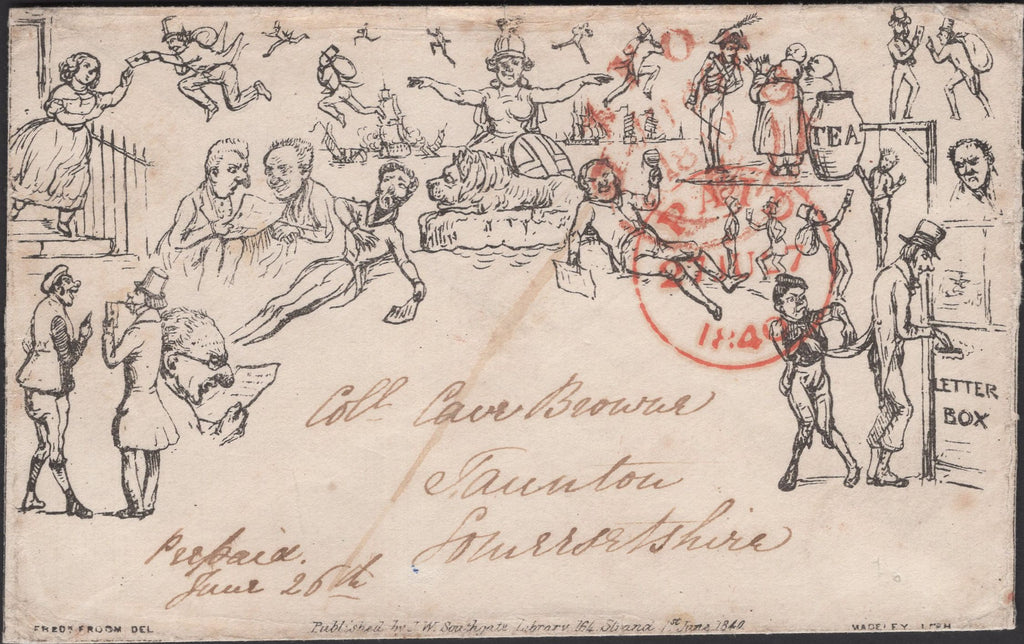 TEA
PAID
27 JU 27
1840
LETTER
BOX
Coll Cave Browne
Taunton
Somersetshire
Prepaid.
June 26th
FREDK FROOM DEL
Published by J. W. Southgate Library 164 Strand 1st June 1840
MADELEY LITH